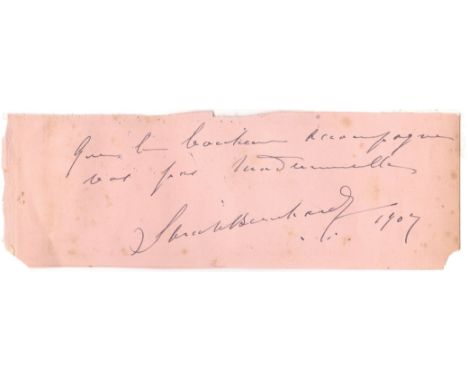 Que le bonheur accompagne
vos pas Mademoiselle
Sarah Bernhardt 1907